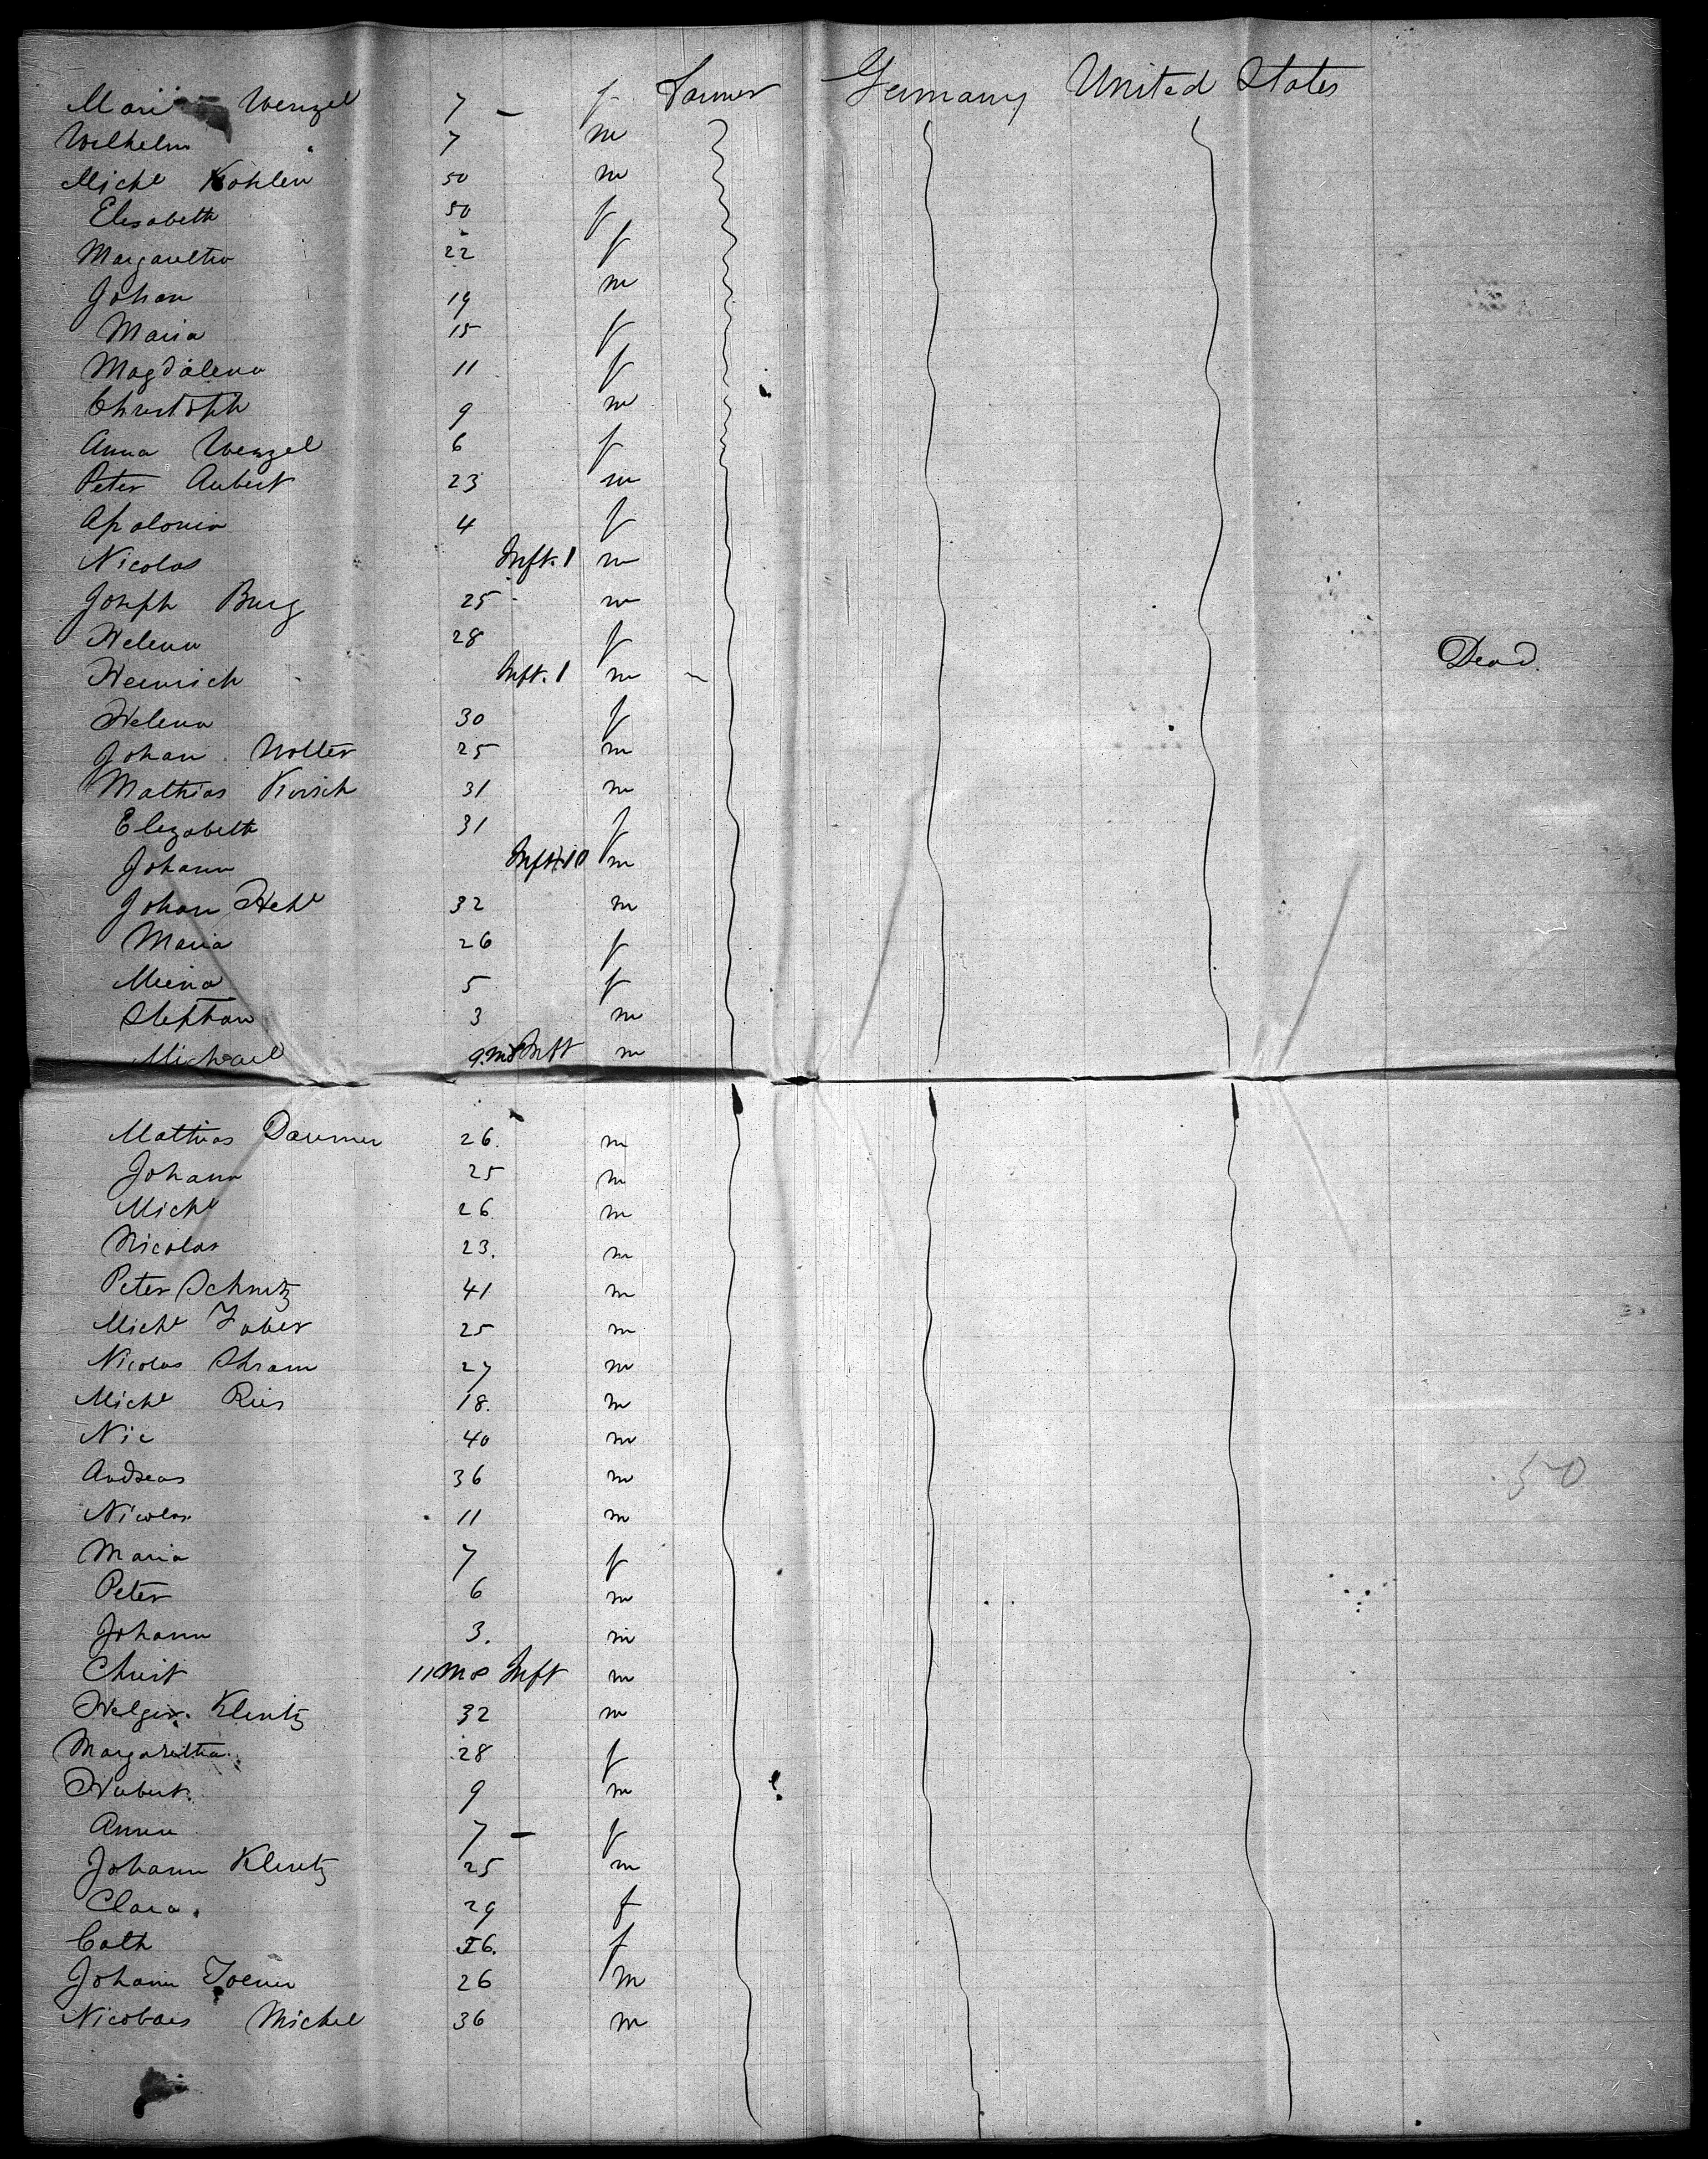 Mari Wenzel 7 - f Farmer Germany United States
Wilhelm 7 m
Michl Kohlen 50 m
Elisabeth 50 f
Margaretha 22 f
Johan 19 m
Maria 15 f
Magdalena 11 f
Christoph 9 m
Anna Wenzel 6 f
Peter Aubert 23 m
Apolonia 4 f
Nicolas Inft. 1 m
Joseph Burg 25 m
Helena 28 f
Heinrich Inft. 1 m Dead.
Helena 30 f
Johan Wolter 25 m
Mathias Kirsch 31 m
Elizabeth 31 f
Johann Inft 10 m
Johan Hehl 32 m
Maria 26 f
Miena 5 f
Stephan 3 m
Michael 9.mos Inft m
Mathias Daumer 26. m
Johann 25 m
Michl 26 m
Nicolas 23. m
Peter Schmitz 41 m
Michl Faber 25 m
Nicolas Shram 27 m
Michl Ries 18. m
Nic 40 m
Andreas 36 m 50
Nicolas 11 m
Maria 7 f
Peter 6 m
Johann 3. m
Christ 11 mos Inft m
Klentz 32 m
Margaretha 28 f
Hubert. 9 m
Anna 7 - f
Johann Klentz 25 m
Clara. 29 f
Cath 26. f
Johann 26 m
Nicolaus Michel 36 m